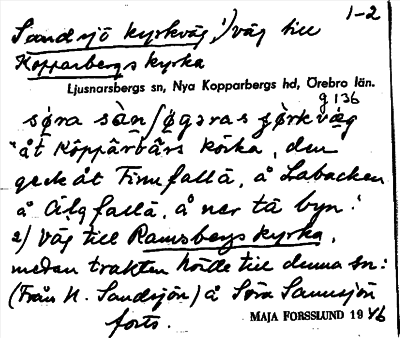 1-2
Sandsjö kyrkväg, 1) väg till
Kopparbergs kyrka
Ljusnarsbergs sn, Nya Kopparbergs hd, Örebro län.
g 136
söra sàn ʃøgəras çørkväg
"åt Köppärbärs körka, den
geck åt Finnfallä, å Labacken
å Älgfallä, å ner tä byn."
2) Väg till Ramsbergs kyrka,
medan trakten hörde till denna sn:
(Från N. Sandsjön) å Söra Sannsjön
forts.
MAJA FORSSLUND 1946